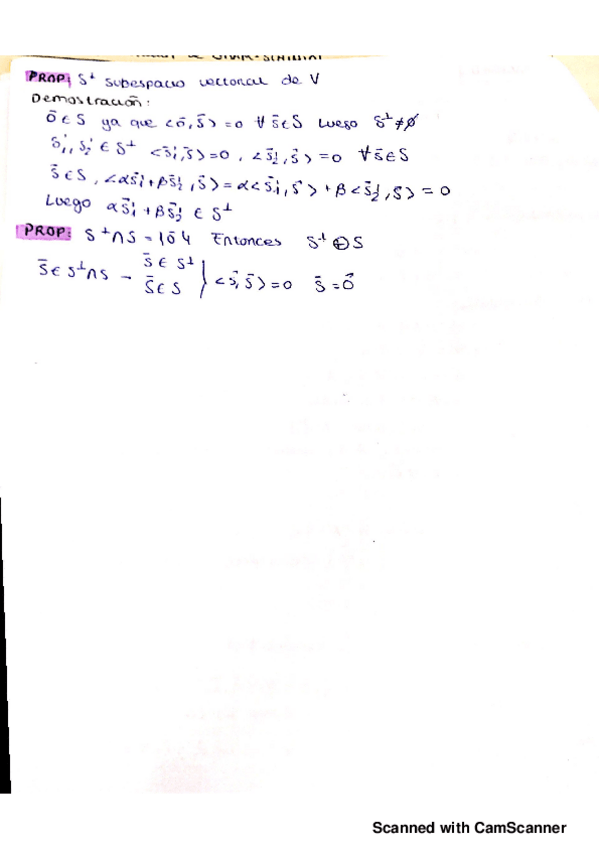 PROP: S⊥ subespacio vectorial de V
Demostración:
ō ∈ S ya que <ō, s̄> = 0 ∀ s̄ ∈ S Luego S⊥ ≠ ∅
s̄'₁, s̄'₂ ∈ S⊥ <s̄'₁, s̄> = 0, <s̄'₂, s̄> = 0 ∀ s̄ ∈ S
s̄ ∈ S, <αs̄'₁ + βs̄'₂, s̄> = α<s̄'₁, s̄> + β<s̄'₂, s̄> = 0
Luego αs̄'₁ + βs̄'₂ ∈ S⊥
PROP: S⊥∩S = {ō} Entonces S⊥ ⊕ S
s̄ ∈ S⊥∩S – s̄ ∈ S⊥ s̄ ∈ S } <s̄, s̄> = 0 s̄ = ō
Scanned with CamScanner